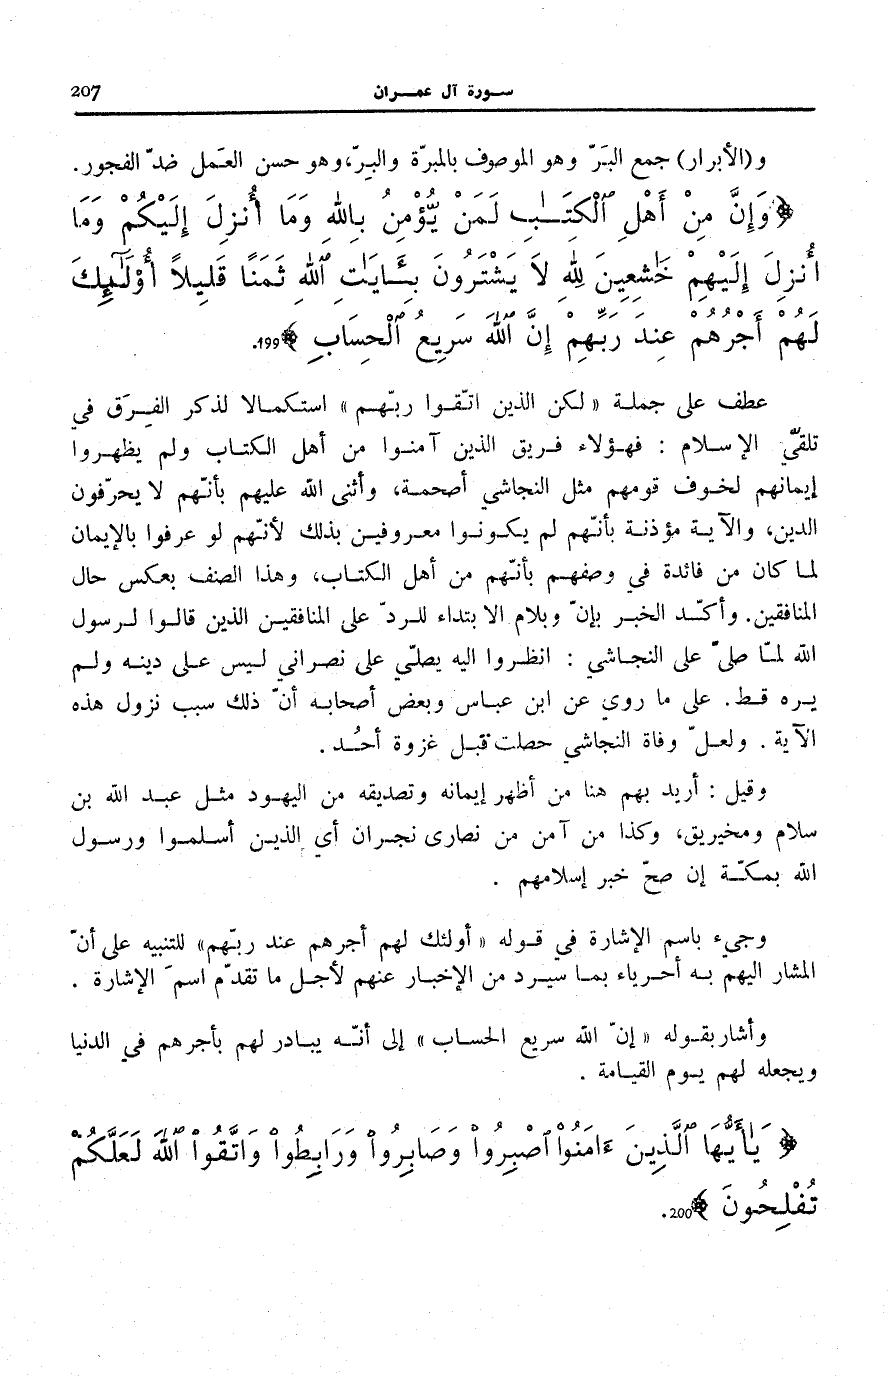 سورة آل عمران 207
و(الأبرار) جمع البَرّ وهو الموصوف بالمبرّة والبِرّ، وهو حسن العَمل ضدّ الفجور.
﴿وَإِنَّ مِنْ أَهْلِ ٱلْكِتَـٰبِ لَمَنْ يُّؤْمِنُ بِاللهِ وَمَا أُنزِلَ إِلَيْكُمْ وَمَا
أُنزِلَ إِلَيْهِمْ خَـٰشِعِينَ لِلهِ لاَ يَشْتَرُونَ بِـَٔايَـٰتِ ٱللهِ ثَمَنًا قَلِيلاً أُوْلَـٰٓئِكَ
لَهُمْ أَجْرُهُمْ عِندَ رَبِّهِمْ إِنَّ ٱللَّهَ سَرِيعُ ٱلْحِسَابِ﴾ 199.
عطف على جملة « لكن الذين اتّقوا ربّهم » استكمالا لذكر الفِرَق في
تلقّي الإسلام : فهؤلاء فريق الذين آمنوا من أهل الكتاب ولم يظهروا
إيمانهم لخوف قومهم مثل النجاشي أصحمة، وأثنى الله عليهم بأنّهم لا يحرّفون
الدين، والآية مؤذنة بأنّهم لم يكونوا معروفين بذلك لأنّهم لو عرفوا بالإيمان
لما كان من فائدة في وصفهم بأنّهم من أهل الكتاب، وهذا الصنف بعكس حال
المنافقين. وأكّد الخبر بإنّ وبلام الابتداء للردّ على المنافقين الذين قالوا لرسول
الله لمّا صلّى على النجاشي : انظروا اليه يصلّي على نصراني ليس على دينه ولم
يره قط. على ما روي عن ابن عباس وبعض أصحابه أنّ ذلك سبب نزول هذه
الآية . ولعلّ وفاة النجاشي حصلت قبل غزوة أحُد .
وقيل : أريد بهم هنا من أظهر إيمانه وتصديقه من اليهود مثل عبد الله بن
سلام ومخيريق، وكذا من آمن من نصارى نجران أي الذين أسلموا ورسول
الله بمكّة إن صحّ خبر إسلامهم .
وجيء باسم الإشارة في قوله « أولئك لهم أجرهم عند ربّهم» للتنبيه على أنّ
المشار اليهم به أحرياء بما سيرد من الإخبار عنهم لأجل ما تقدّم اسمَ الإشارة .
وأشار بقوله « إنّ الله سريع الحساب » إلى أنّه يبادر لهم بأجرهم في الدنيا
ويجعله لهم يوم القيامة .
﴿ يَـٰأَيُّهَا ٱلَّذِينَ ءَامَنُواْ ٱصْبِرُواْ وَصَابِرُواْ وَرَابِطُواْ وَاتَّقُواْ ٱللَّهَ لَعَلَّكُمْ
تُفْلِحُونَ ﴾ 200.